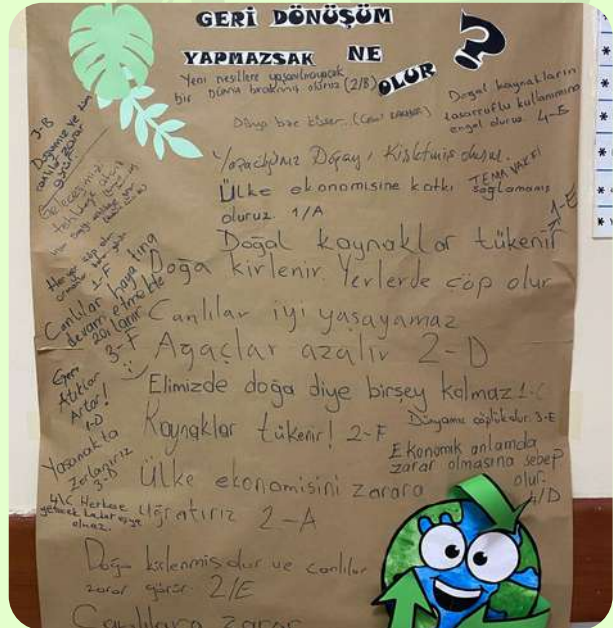 GERİ DÖNÜŞÜM
YAPMAZSAK NE
OLUR ?
Yeni nesillere yaşanılmayacak
bir Dünya bırakmış oluruz (2/B)
Dünya bize küser...
Doğal kaynakların
tasarruflu kullanımına
engel oluruz. 4-E
Doğayı Kirletmiş oluruz.
TEMA VAKFI
Ülke ekonomisine katkı sağlamamış
oluruz. 1/A
1-E
Doğal kaynaklar tükenir
Doğa kirlenir. Yerlerde çöp olur
Canlılar iyi yaşayamaz
Ağaçlar azalır 2-D
Elimizde doğa diye birşey kalmaz 1-C
Kaynaklar tükenir! 2-F
Dünyamız çöplük olur. 3-E
Ekonomik anlamda
zarar olmasına sebep
olur.
4/D
Ülke ekonomisini zarara
uğratırız 2-A
Doğa kirlenmiş olur ve canlılar
zarar görür. 2/E
Canlılara zarar
3-B
Doğamız ve tüm
canlılar zarar
görür.
Geleceğimizi
tehlikeye atarız
Her yer çöp olur
1-F
Canlılar hayatına
devam etmekte
zorlanır
3-F
Geri
Atıklar
Artar!
1-D
Yaşamakta
zorlanırız
3-D
4/C Herkese
yetecek kadar eşya
olmaz.